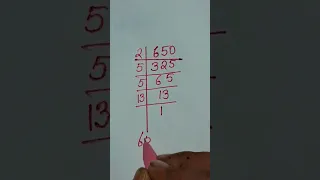 2 650
5 325
5 65
13 13
1
60